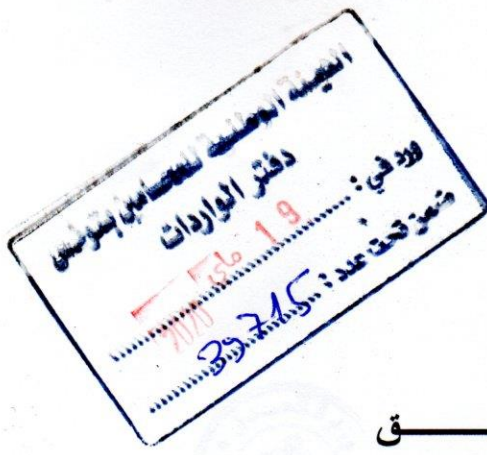 الهيئة الوطنية للمحامين بتونس
دفتر الواردات
ورد في : 19 ماي 2020
ضمن تحت عدد : 39715
ـــق